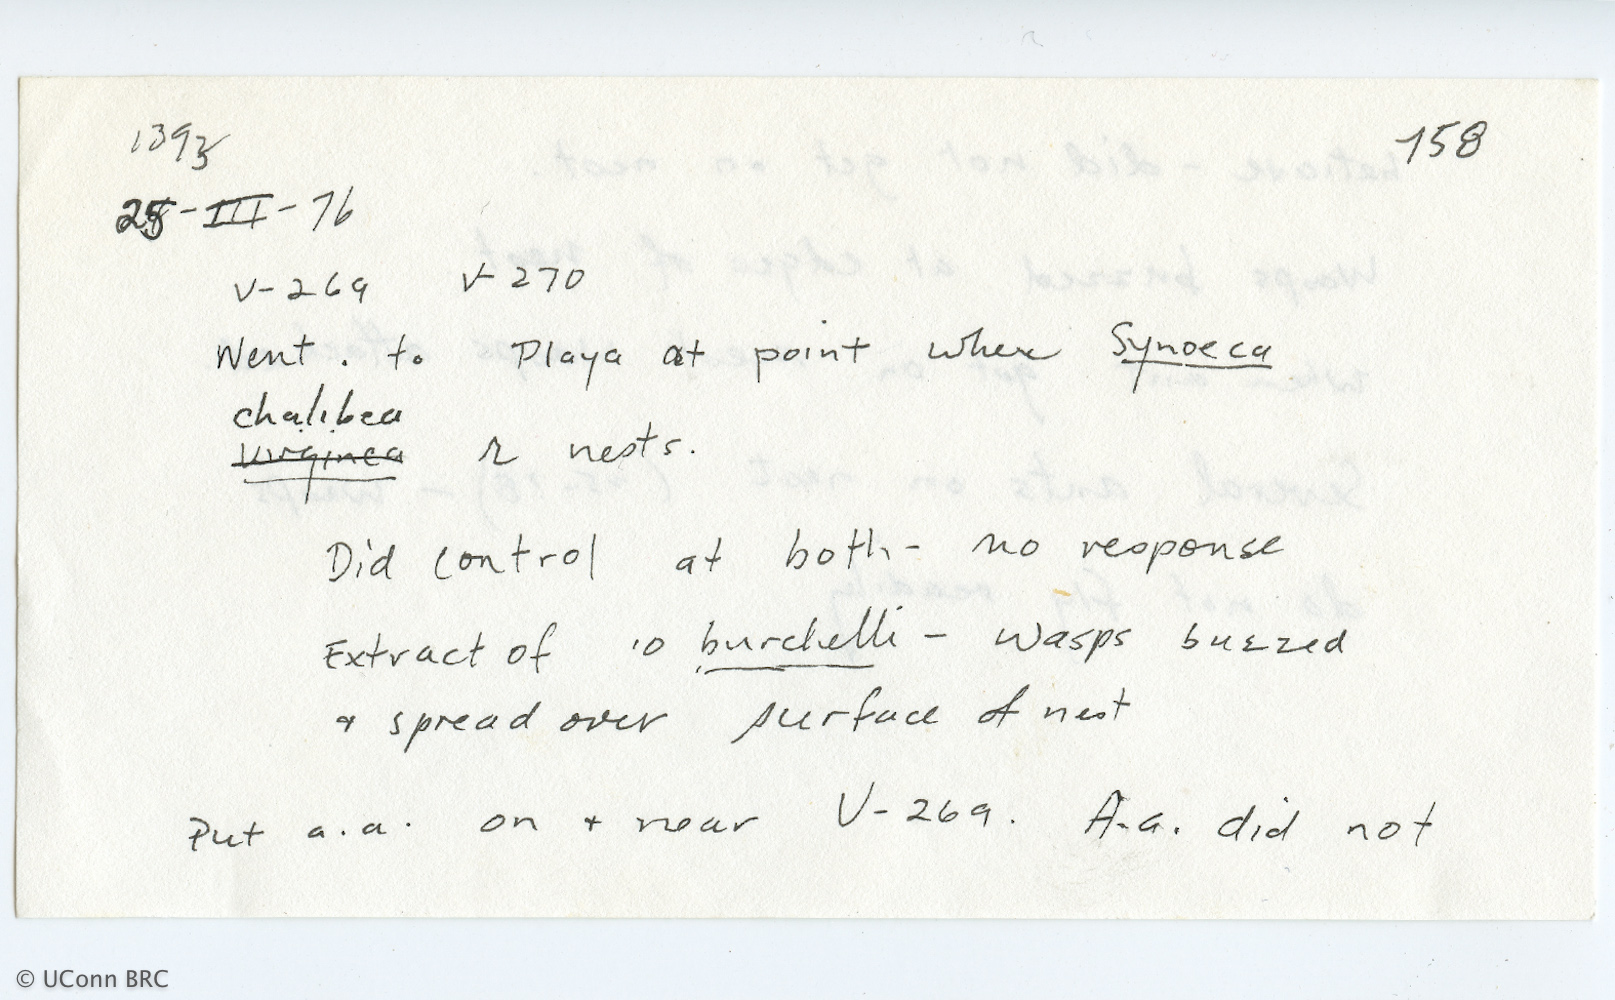 1393
158
25-III-76
V-269 V-270
Went. to Playa at point where Synoeca
chalibea
virginea 2 nests.
Did control at both - no response
Extract of 10 burchelli - wasps buzzed
+ spread over surface of nest
Put a.a. on + near V-269. A.a. did not
© UConn BRC